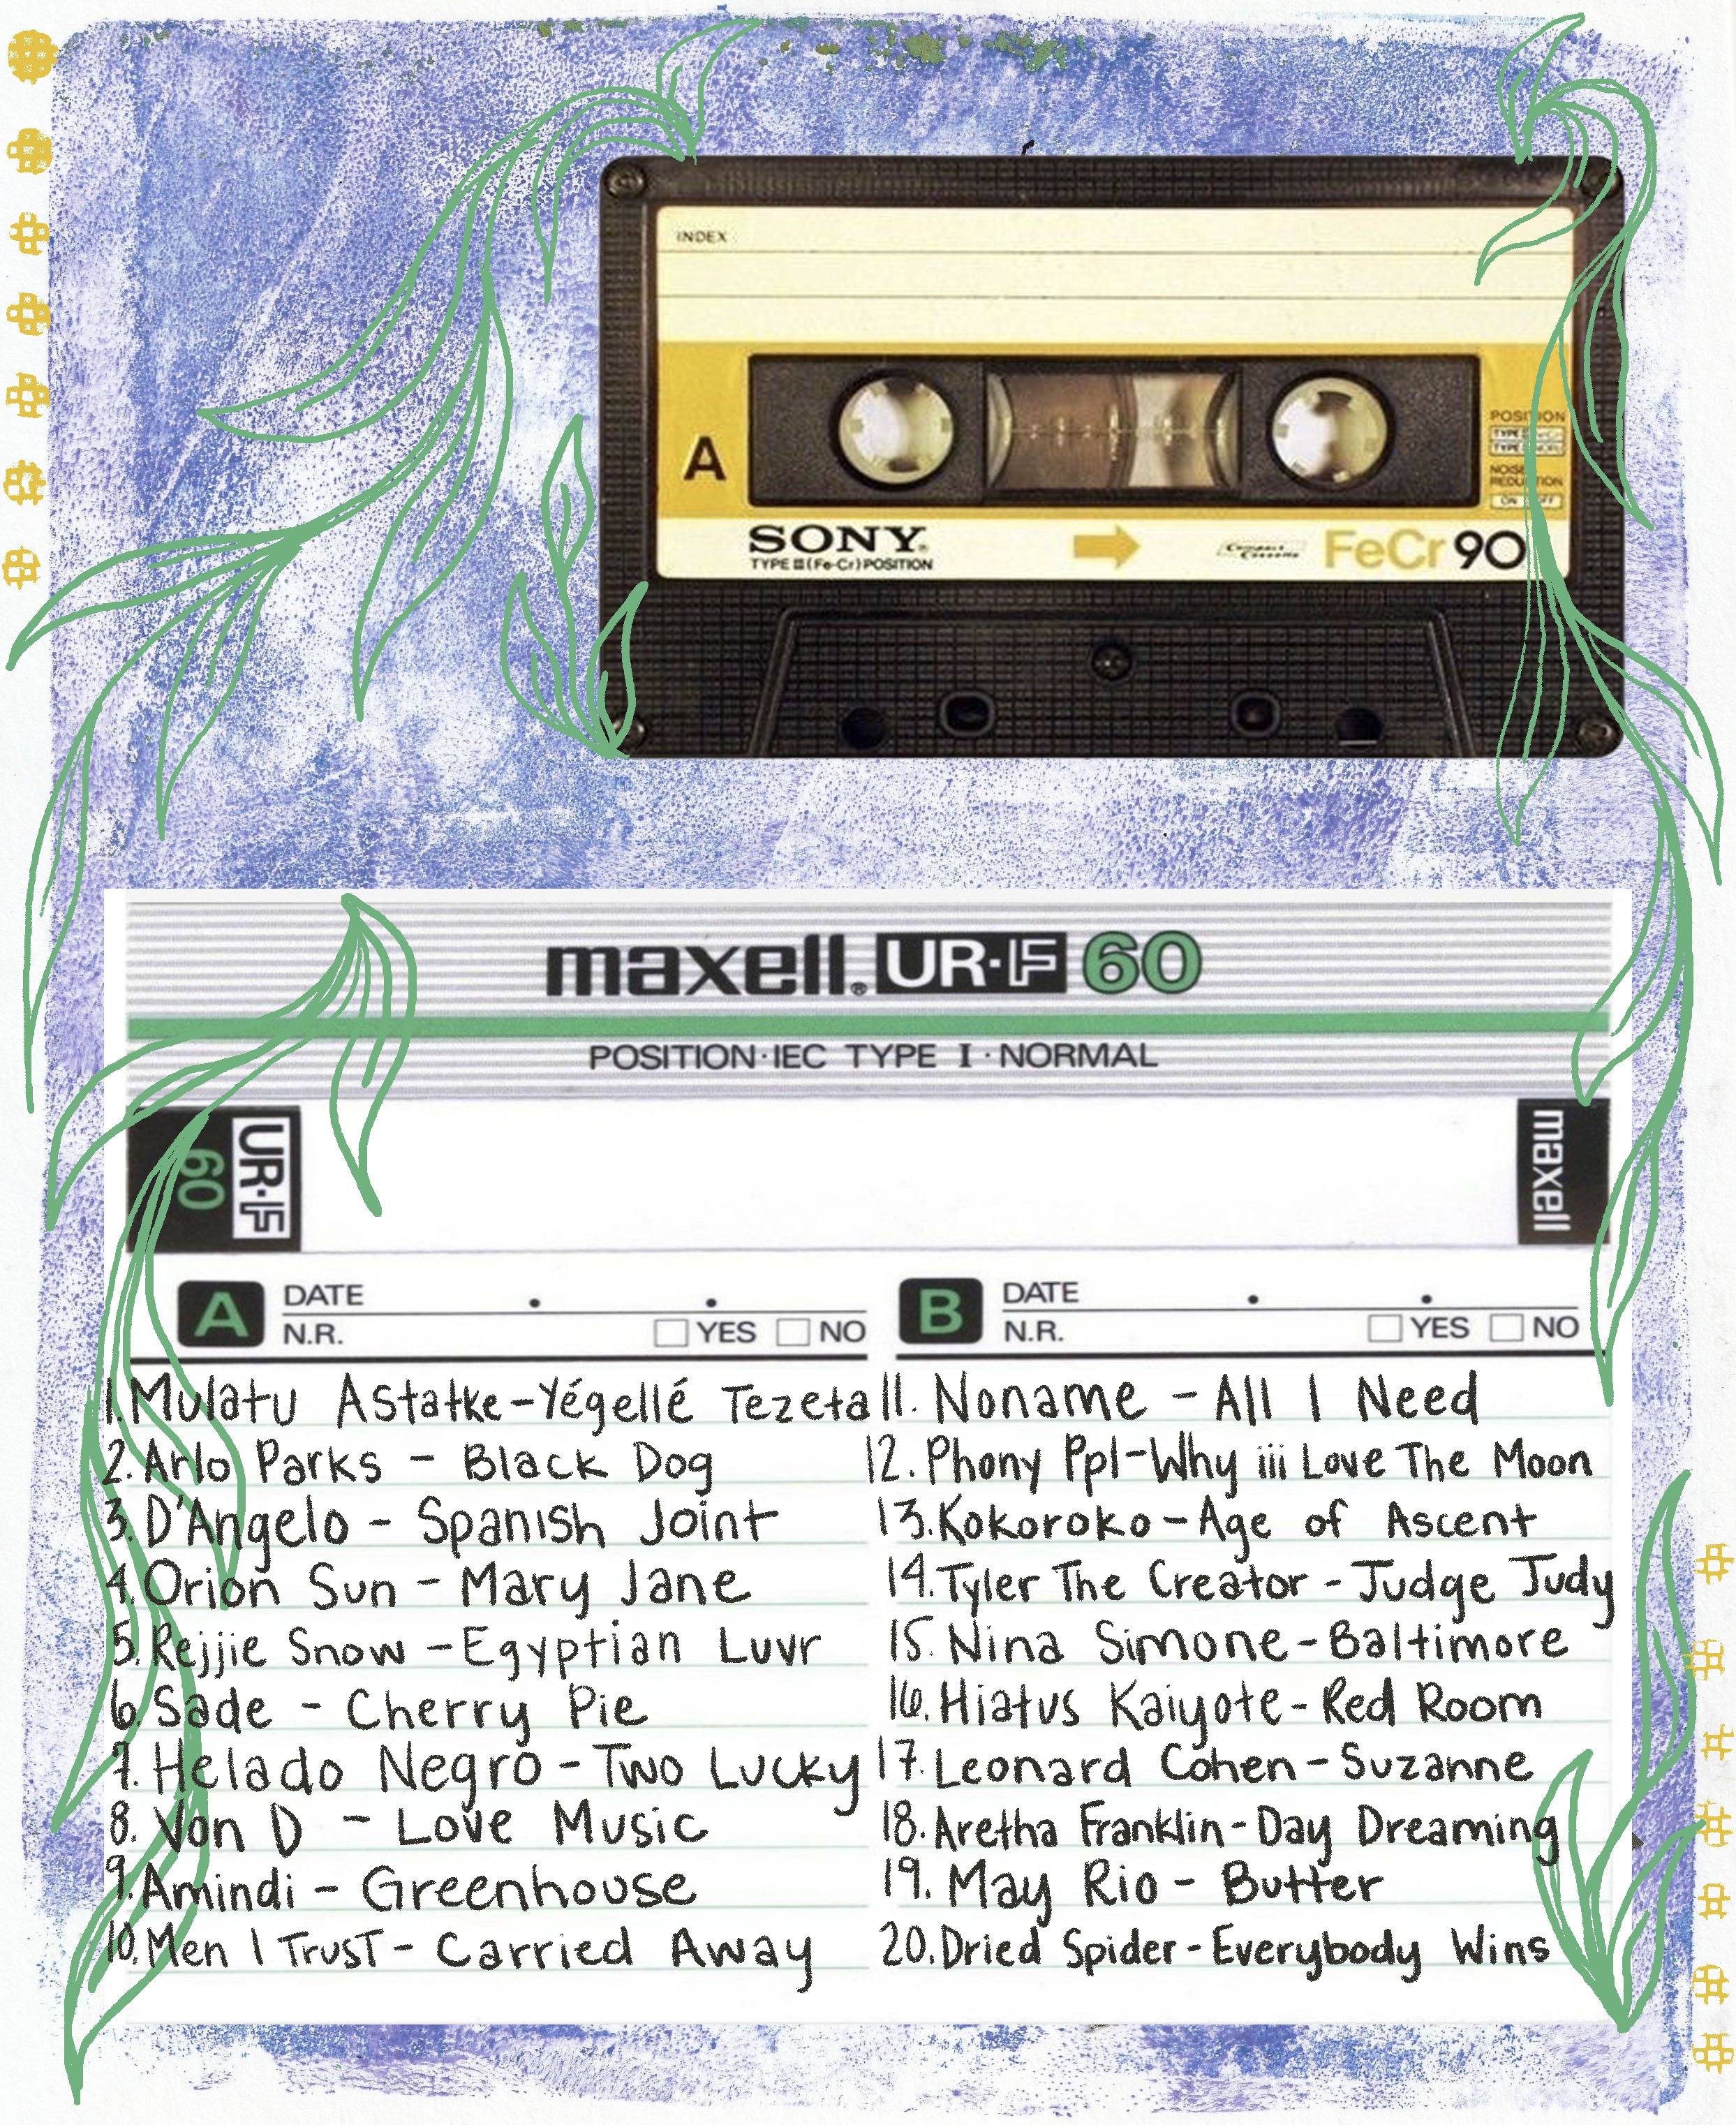 INDEX
A
POSITION
NOISE
REDUCTION
ON OFF
SONY
TYPE III (Fe-Cr) POSITION
Compact Cassette
FeCr 90
maxell UR·F 60
POSITION·IEC TYPE I·NORMAL
UR·F 60
maxell
A DATE
N.R. YES NO
B DATE
N.R. YES NO
1. Mulatu Astatke - Yégellé Tezeta
2. Arlo Parks - Black Dog
3. D'Angelo - Spanish Joint
4. Orion Sun - Mary Jane
5. Rejjie Snow - Egyptian Luvr
6. Sade - Cherry Pie
7. Helado Negro - Two Lucky
8. Von D - Love Music
9. Amindi - Greenhouse
10. Men I Trust - Carried Away
11. Noname - All I Need
12. Phony Ppl - Why iii Love The Moon
13. Kokoroko - Age of Ascent
14. Tyler The Creator - Judge Judy
15. Nina Simone - Baltimore
16. Hiatus Kaiyote - Red Room
17. Leonard Cohen - Suzanne
18. Aretha Franklin - Day Dreaming
19. May Rio - Butter
20. Dried Spider - Everybody Wins